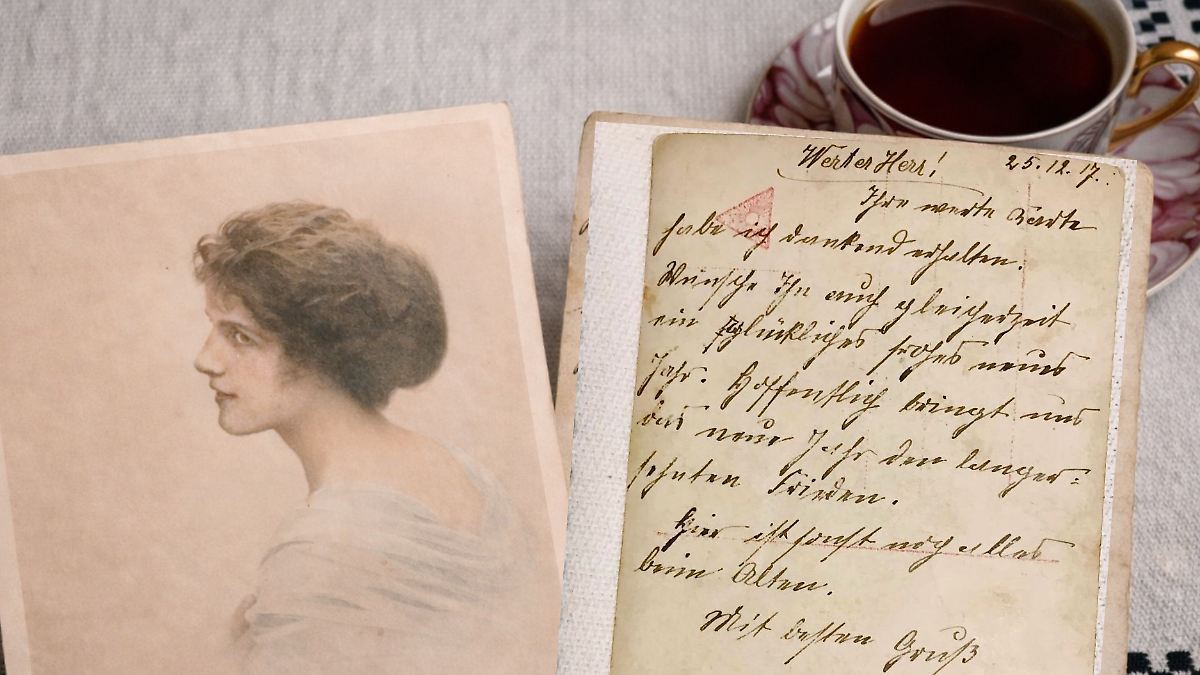 Werter Herr! 25.12.17.
Ihre werte Karte
habe ich dankend erhalten.
Wünsche Ihn auch gleicherzeit
ein glückliches frohes neues
Jahr. Hoffentlich bringt uns
das neue Jahr den langer-
sehnten Frieden.
Hier ist sonst noch alles
beim Alten.
Mit besten Gruß